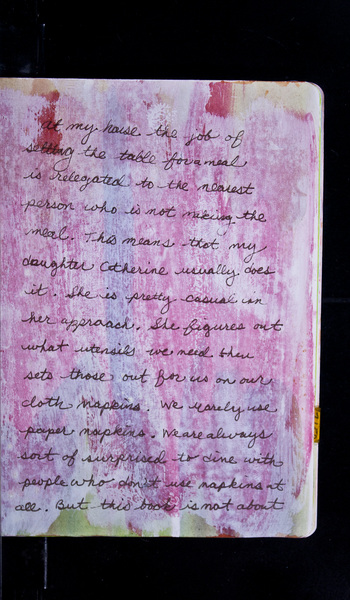 At my house the job of
setting the table for a meal
is relegated to the nearest
person who is not making the
meal. This means that my
daughter Catherine usually does
it. She is pretty casual in
her approach. She figures out
what utensils we need then
sets those out for us on our
cloth napkins. We rarely use
paper napkins. We are always
sort of surprised to dine with
people who don't use napkins at
all. But this book is not about